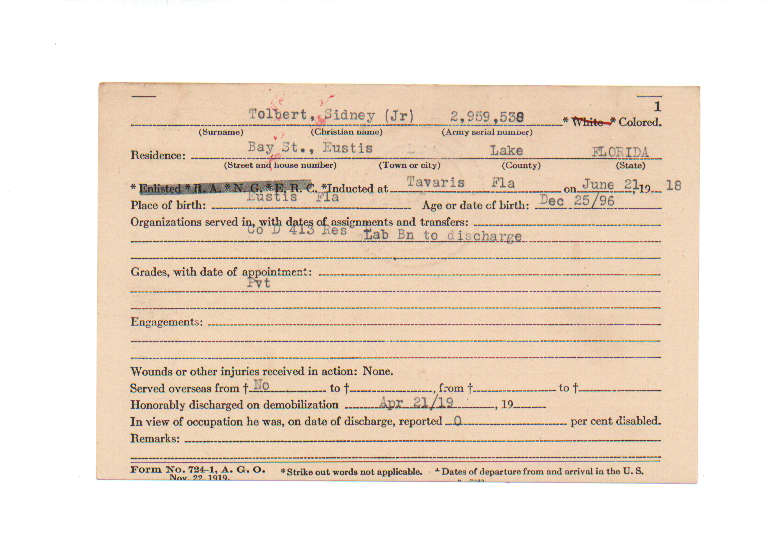 1
Tolbert, Sidney (Jr) 2,959,538 * White * Colored.
(Surname) (Christian name) (Army serial number)
Residence: Bay St., Eustis Lake FLORIDA
(Street and house number) (Town or city) (County) (State)
* Enlisted * R. A. * N. G. * E. R. C. *Inducted at Tavaris Fla on June 21, 19 18
Place of birth: Eustis Fla Age or date of birth: Dec 25/96
Organizations served in, with dates of assignments and transfers:
Co D 413 Res Lab Bn to discharge
Grades, with date of appointment:
Pvt
Engagements:
Wounds or other injuries received in action: None.
Served overseas from † No to †, from † to †
Honorably discharged on demobilization Apr 21/19, 19
In view of occupation he was, on date of discharge, reported 0 per cent disabled.
Remarks:
Form No. 724-1, A. G. O. *Strike out words not applicable. † Dates of departure from and arrival in the U. S.
Nov. 22, 1919.